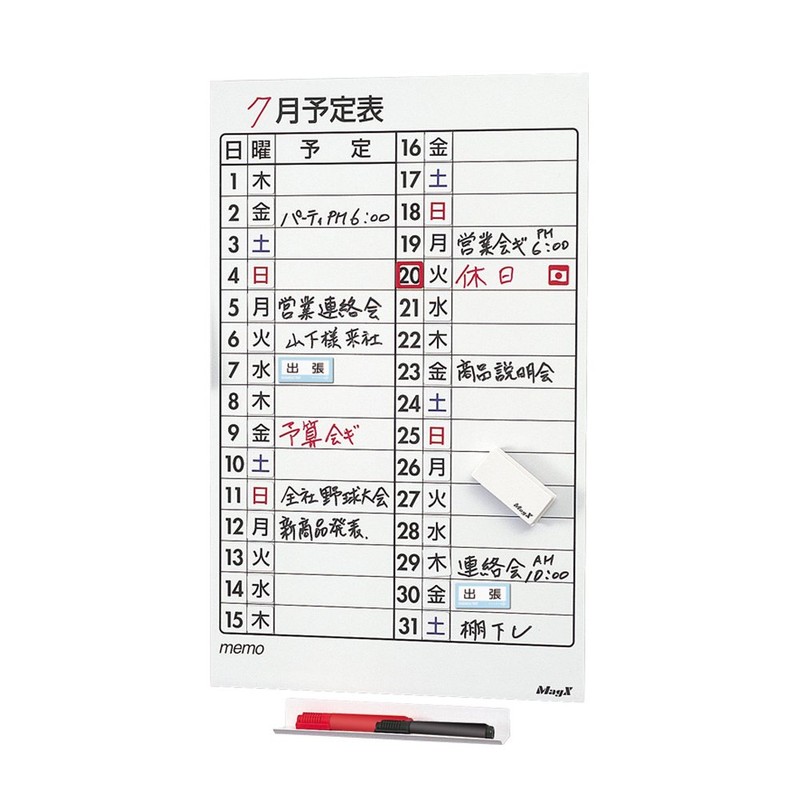 7月予定表
日 曜 予 定
1 木
2 金 パーティPM6:00
3 土
4 日
5 月 営業連絡会
6 火 山下様来社
7 水 出張
8 木
9 金 予算会ギ
10 土
11 日 全社野球大会
12 月 新商品発表.
13 火
14 水
15 木
16 金
17 土
18 日
19 月 営業会ギ PM6:00
20 火 休日
21 水
22 木
23 金 商品説明会
24 土
25 日
26 月
27 火
28 水
29 木 連絡会 AM10:00
30 金 出張
31 土 棚下し
memo
MagX
MagX